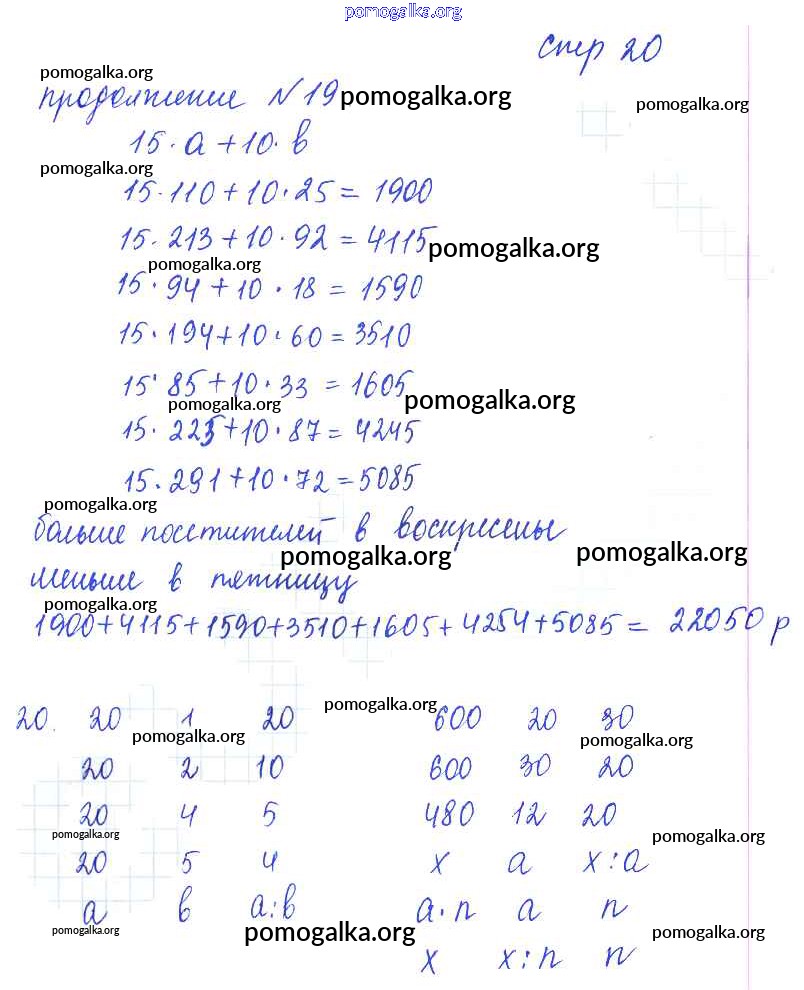 pomogalka.org
стр 20
pomogalka.org
продолжение №19 pomogalka.org pomogalka.org
15·a+10·b
pomogalka.org
15·110+10·25=1900
15·213+10·92=4115 pomogalka.org
pomogalka.org
15·94+10·18=1590
15·194+10·60=3510
15·85+10·33=1605
pomogalka.org pomogalka.org
15·225+10·87=4245
15·291+10·72=5085
pomogalka.org
больше посетителей в воскресенье
pomogalka.org pomogalka.org
меньше в петницу
pomogalka.org
1900+4115+1590+3510+1605+4254+5085=22050 р
pomogalka.org
20. 20 1 20 600 20 30
pomogalka.org pomogalka.org
20 2 10 600 30 20
20 4 5 480 12 20
pomogalka.org pomogalka.org
20 5 4 x a x:a
a b a:b a·n a n
pomogalka.org pomogalka.org pomogalka.org
x x:n n